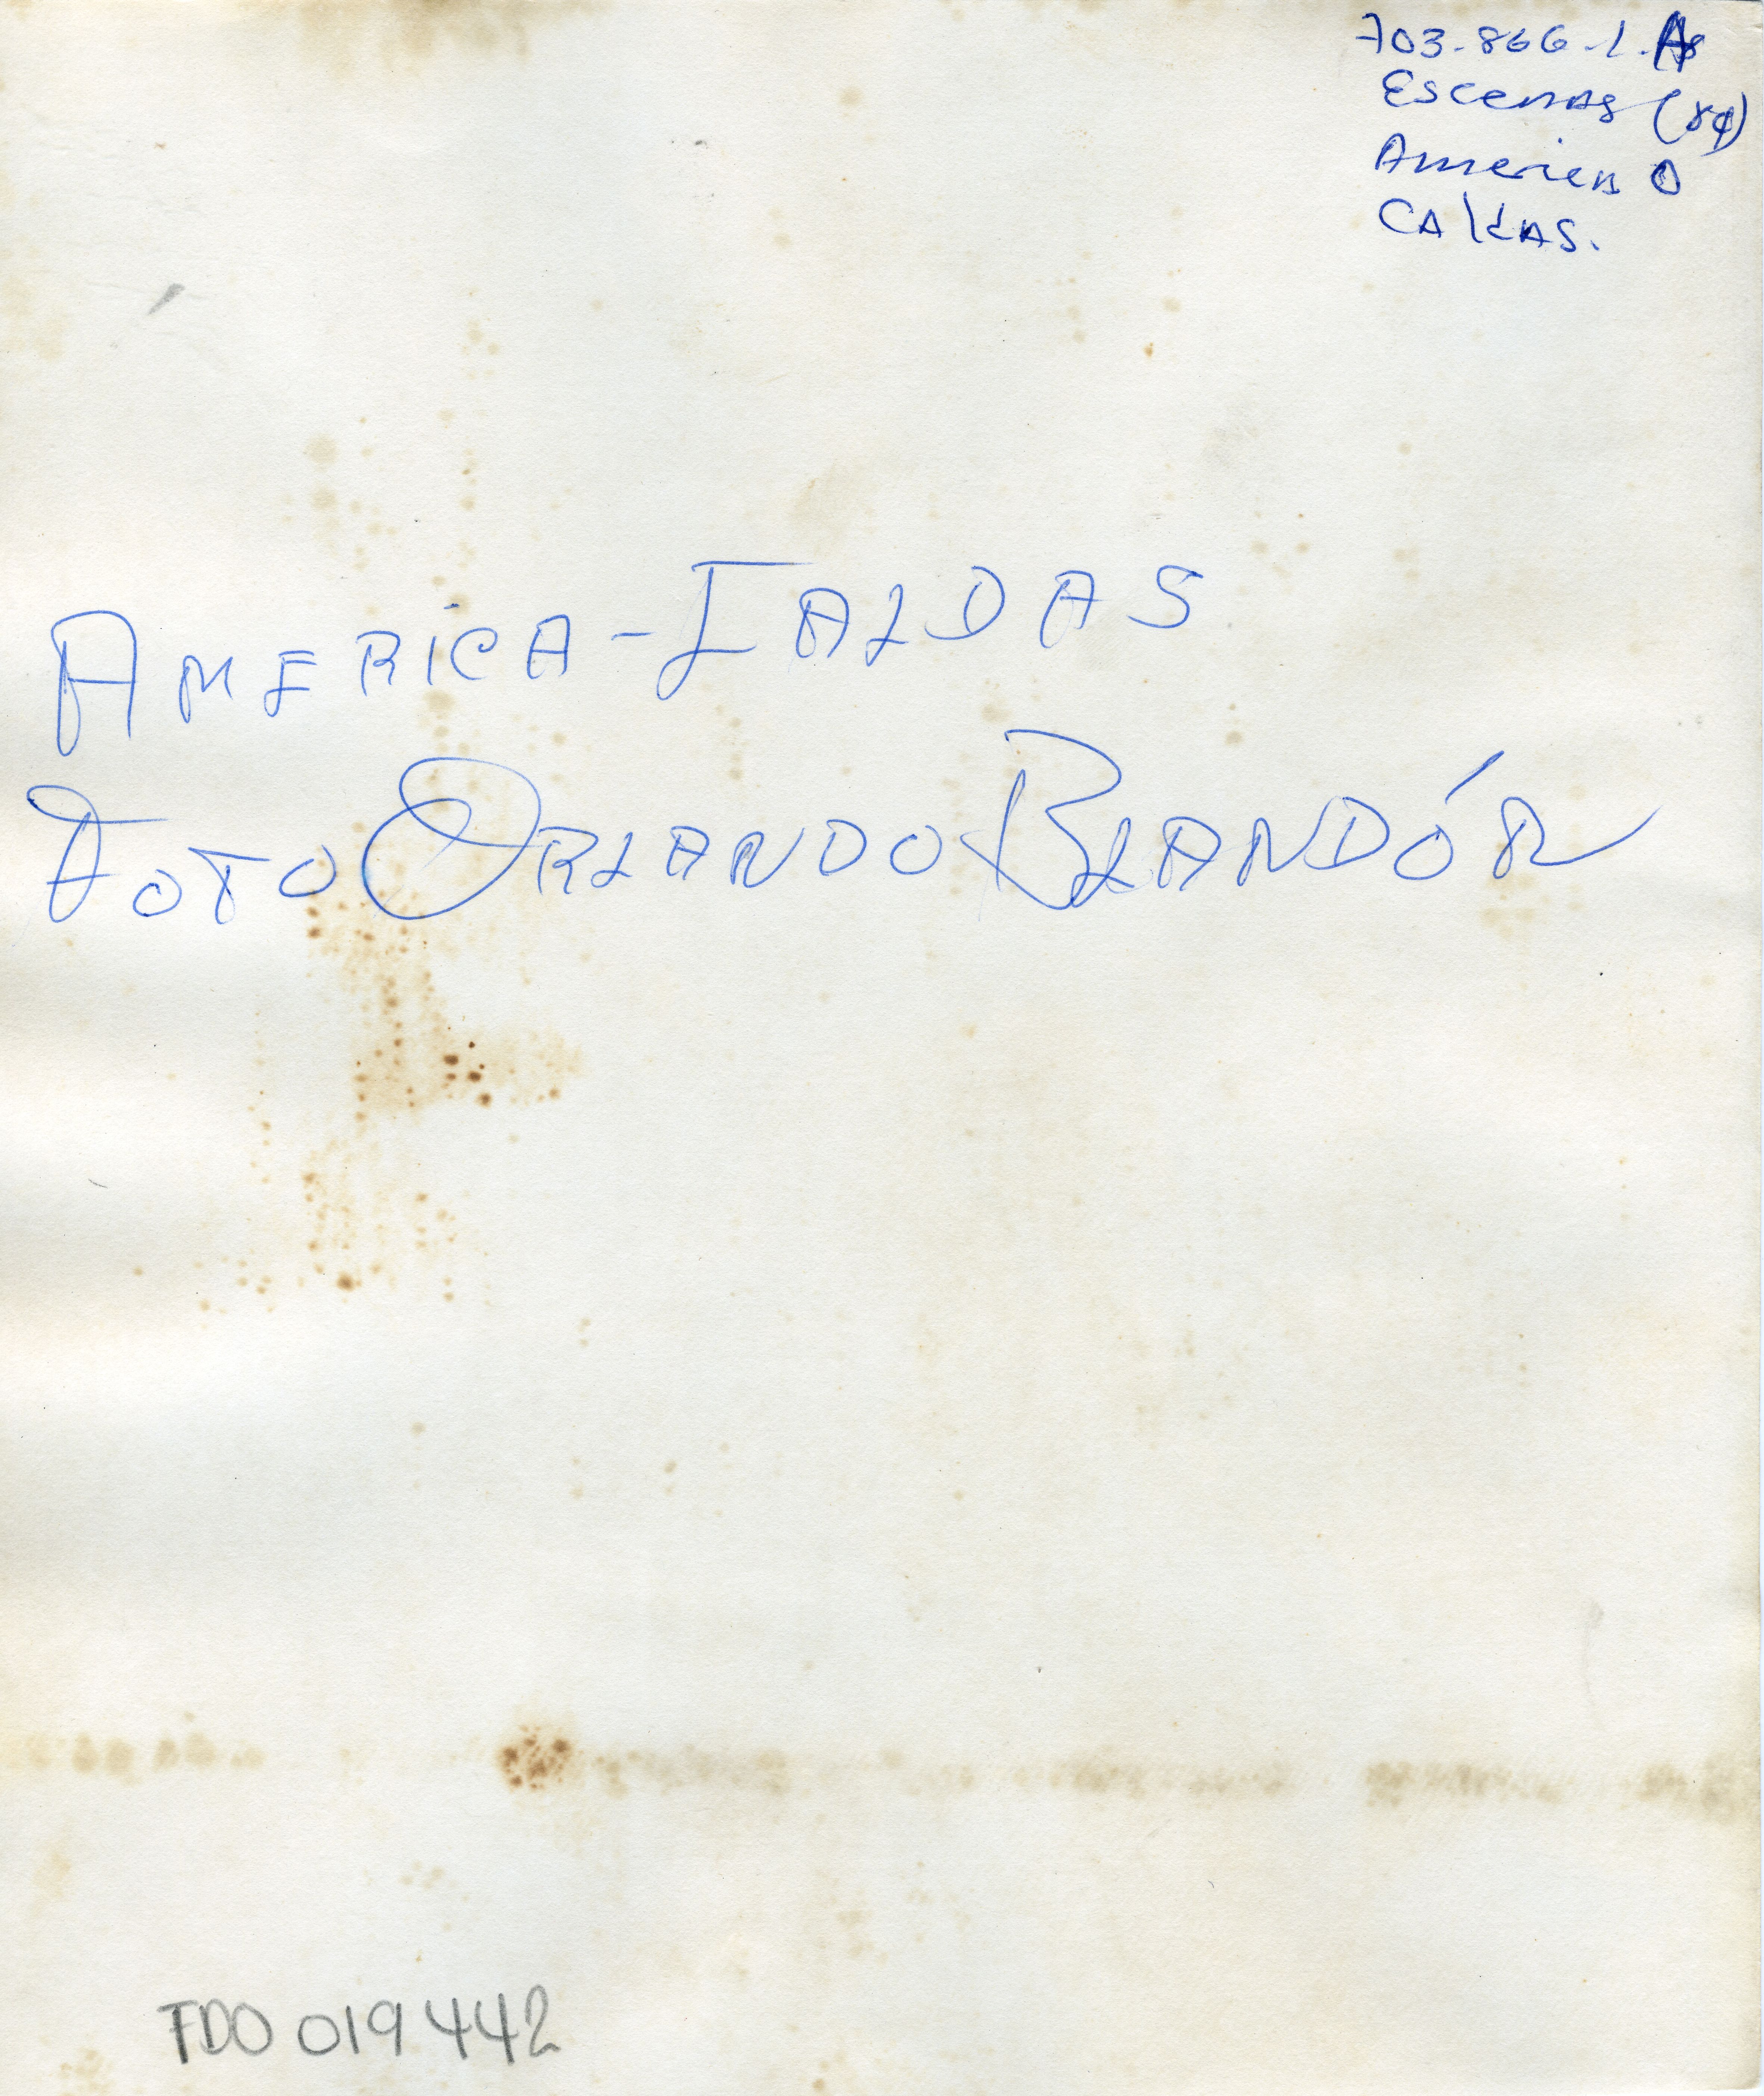 703-866-1.
Escenas (84)
America 0
CAldAS.
AMERICA - CALDAS
FOTO ORLANDO BLANDÓN
FDO 019442